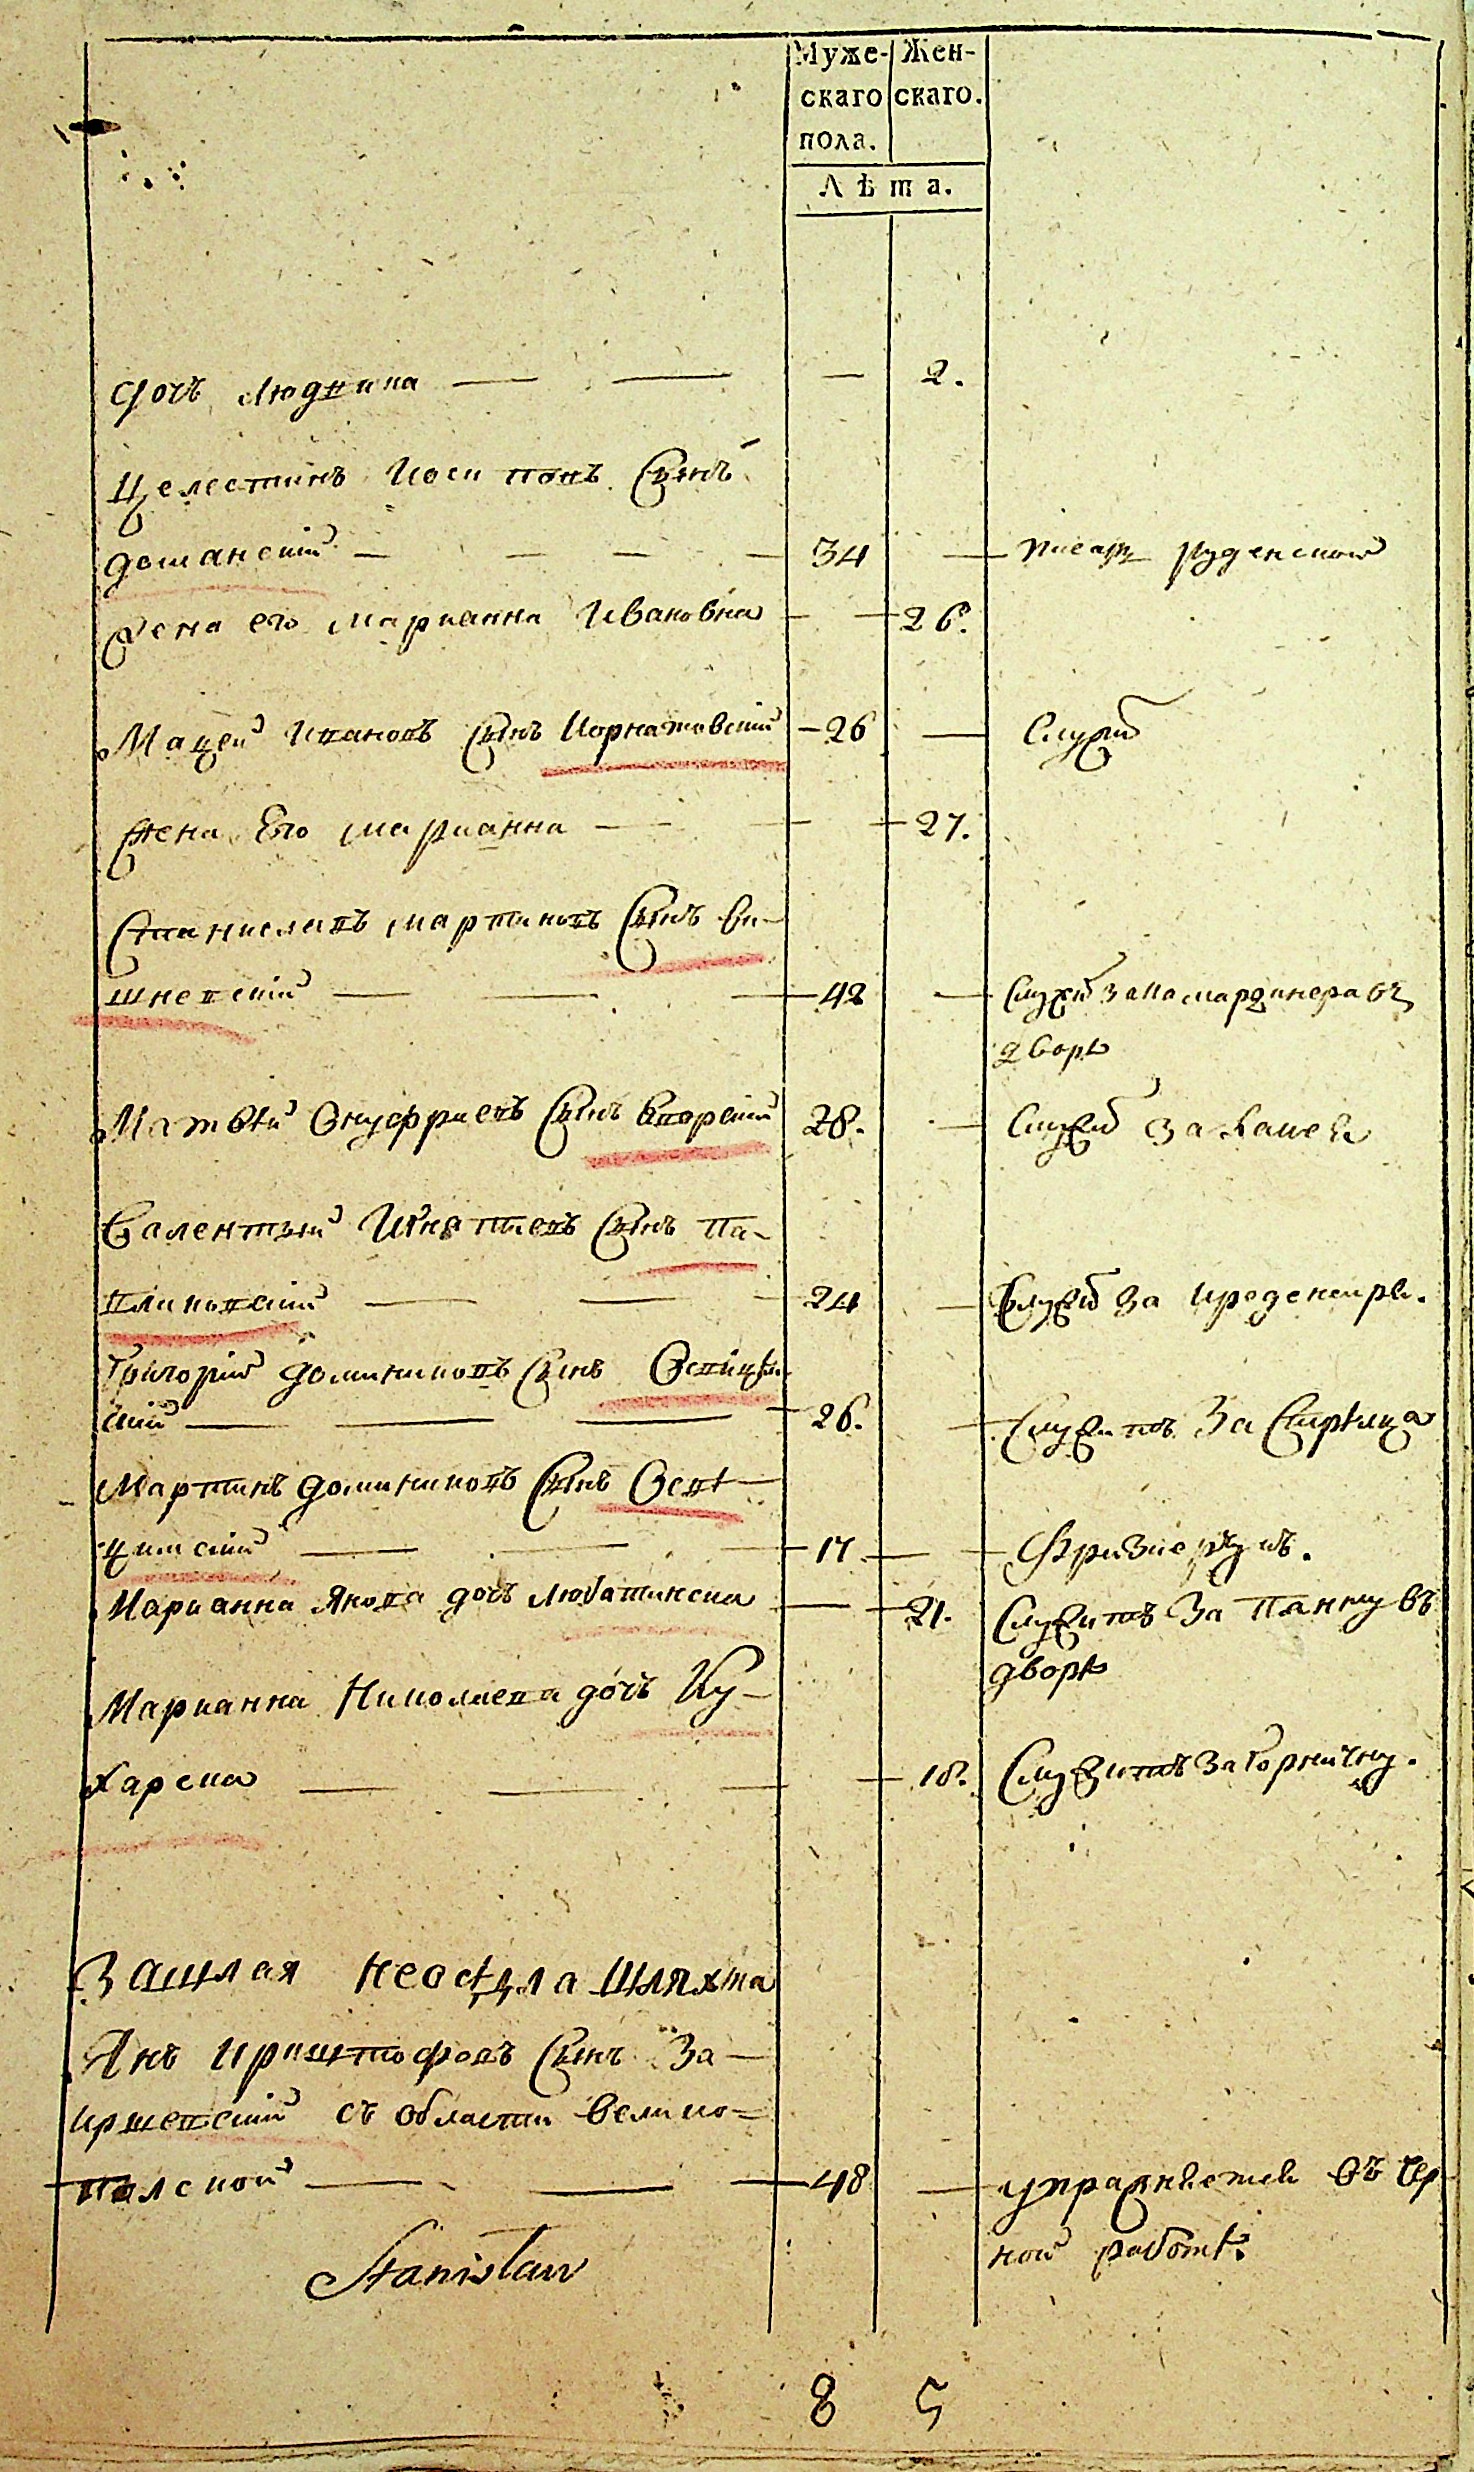 Муже- Жен-
скаго скаго.
пола.
Лѣта.
Дочь Людвика — — — 2.
Целестинъ Иосиповъ Сынъ
Доманский — — — — 34 — писарь руденской
Жена его Марианна Ивановна — — 26.
Мацей Ивановъ Сынъ Корнатовский — 26 — Служит
Жена Его Марианна — — — 27.
Станиславъ Мартиновъ Сынъ Ви-
шневский — — — 42 — Служит за камардинера въ
дворѣ
Матвѣй Онуфриевъ Сынъ 28. — Служит за
Валентый Игнатиевъ Сынъ Па-
вликовский — — — 24 — Служит за креденсира.
Григорий Доминиковъ Сынъ
ский — — — — 26. — Служитъ За Стрѣлца
Мартинъ Доминиковъ Сынъ Осве-
цимский — — — 17. — — Фризиеромъ.
Марианна Якова дочь Любатинска — — 21. Служитъ За Панну въ
дворѣ
Марианна Николаева дочь Ку-
харска — — — — 18. Служитъ за Горничну.
Зашлая неосѣдла шляхта
Янъ Криштофовъ Сынъ За-
кржевский съ области Велико-
полской — — — 48 — упражняется въ Чер
ной работѣ.
Stanislaw
8 5